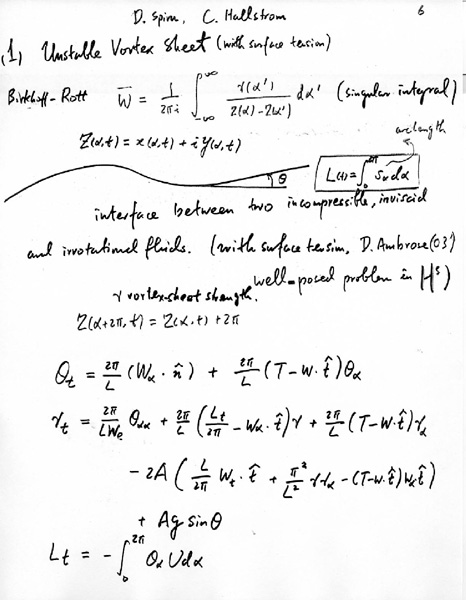 D. Spirn, C. Hallstrom
6
(1) Unstable Vortex Sheet (with surface tension)
Birkhoff-Rott W̅ = 1/(2πi) ∫_{-∞}^{∞} γ(α')/(Z(α)-Z(α')) dα' (singular integral)
Z(α,t) = x(α,t) + i y(α,t)
arclength
θ
L(t) = ∫_0^{2π} S_α dα
interface between two incompressible, inviscid
and irrotational fluids. (with surface tension, D. Ambrose (03')
well-posed problem in H^s)
γ vortex-sheet strength.
Z(α+2π,t) = Z(α,t) + 2π
θ_t = 2π/L (W_α · n̂) + 2π/L (T - W·t̂) θ_α
γ_t = 2π/(L We) θ_αα + 2π/L (L_t/2π - W_α · t̂) γ + 2π/L (T - W·t̂) γ_α
- 2A ( L/2π W_t · t̂ + π²/L² γ γ_α - (T - W·t̂) W_α·t̂ )
+ Ag sin θ
L_t = - ∫_0^{2π} θ_α U dα